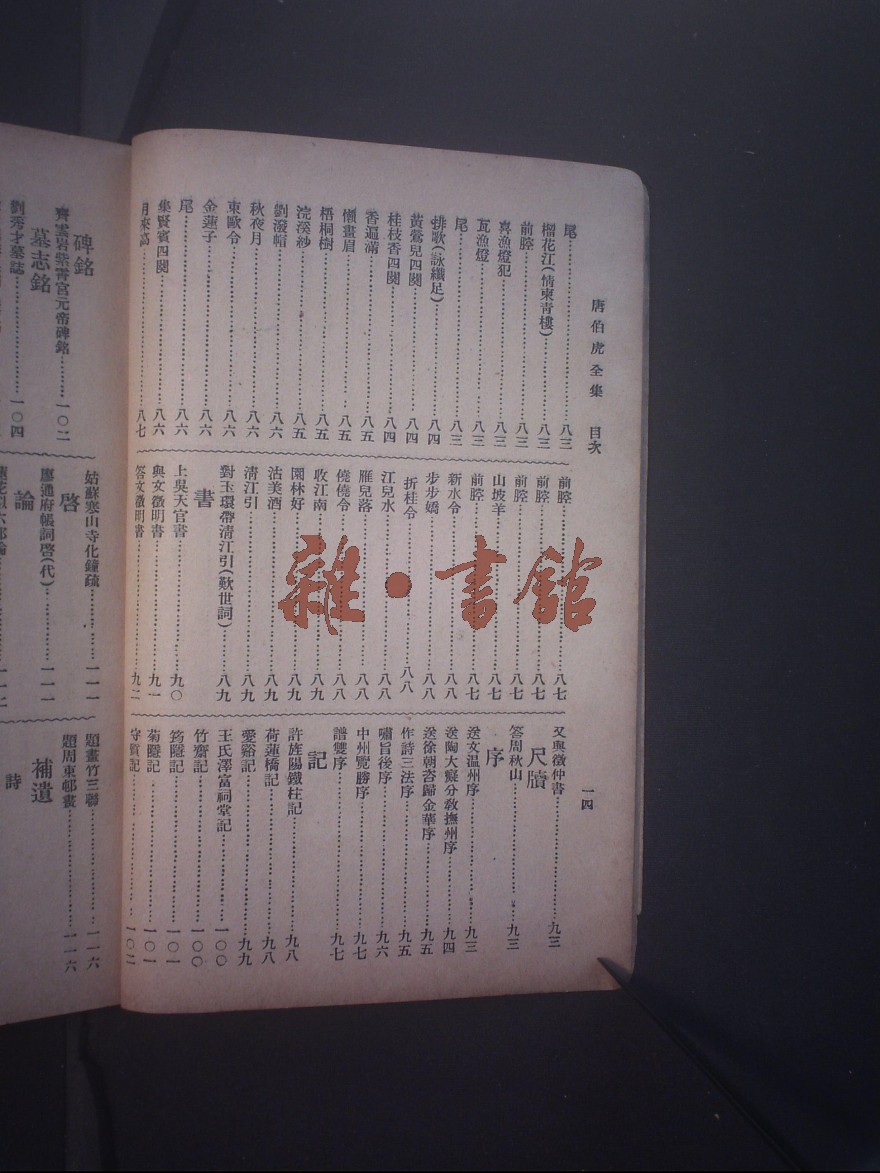 唐伯虎全集 目次 一四
尾……八三
榴花江(情柬青樓)……八三
前腔……八三
喜漁燈犯……八三
瓦漁燈……八三
尾……八三
排歌(詠纖足)……八四
黃鶯兒四闋……八四
桂枝香四闋……八四
香遍滿……八五
懶畫眉……八五
梧桐樹……八五
浣溪紗……八五
劉潑帽……八六
秋夜月……八六
東甌令……八六
金蓮子……八六
尾……八六
集賢賓四闋……八六
月來高……八七
前腔……八七
前腔……八七
前腔……八七
山坡羊……八七
前腔……八七
新水令……八八
步步嬌……八八
折桂令……八八
江兒水……八八
雁兒落……八八
僥僥令……八八
收江南……八九
園林好……八九
沽美酒……八九
清江引……八九
對玉環帶清江引(歎世詞)……八九
書
上吳天官書……九〇
與文徵明書……九一
答文徵明書……九二
又與徵仲書……九三
尺牘
答周秋山……九三
序
送文温州序……九三
送陶大癡分敎撫州序……九四
送徐朝咨歸金華序……九五
作詩三法序……九五
嘯旨後序……九六
中州覽勝序……九七
譜雙序……九七
記
許旌陽鐵柱記……九八
荷蓮橋記……九八
愛谿記……九九
王氏澤富祠堂記……一〇〇
竹齋記……一〇〇
筠隱記……一〇一
菊隱記……一〇一
守質記……一〇二
碑銘
齊雲岩紫霄宮元帝碑銘……一〇二
墓志銘
劉秀才墓誌……一〇四
姑蘇寒山寺化鐘疏……一一一
啓
膠通府帳詞啓(代)……一一一
論
題畫竹三聯……一一六
題周東邨畫……一一六
補遺
詩
雜·書館